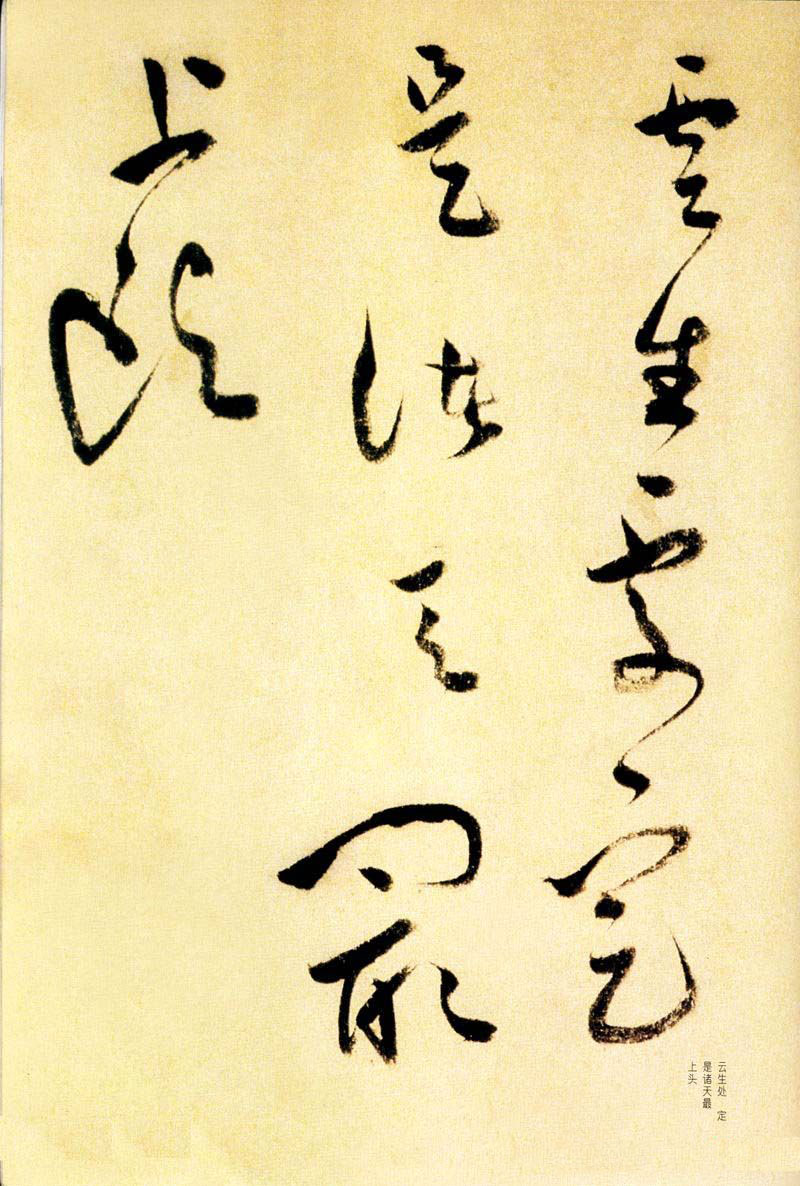 雲生處定
是諸天最
上頭
云生处 定
是诸天最
上头